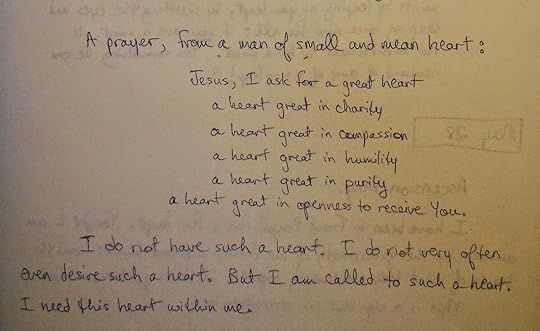 A prayer, from a man of small and mean heart:
Jesus, I ask for a great heart
a heart great in charity
a heart great in compassion
a heart great in humility
a heart great in purity
a heart great in openness to receive You.
I do not have such a heart. I do not very often
even desire such a heart. But I am called to such a heart.
I need this heart within me.